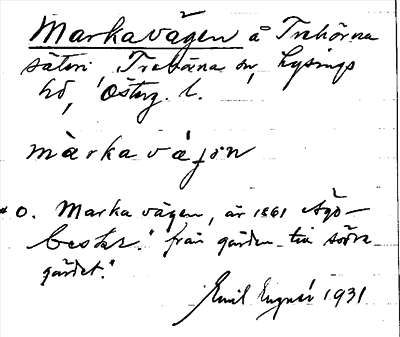 Markavägen å Trehörna
säteri, Trehörna sn, Lysings
hd, Österg. l.
màrkavá̀jən
*o. Markavägen, är 1861 Ägo-
beskr. "från gården till södra
gärdet."
Emil 1931.